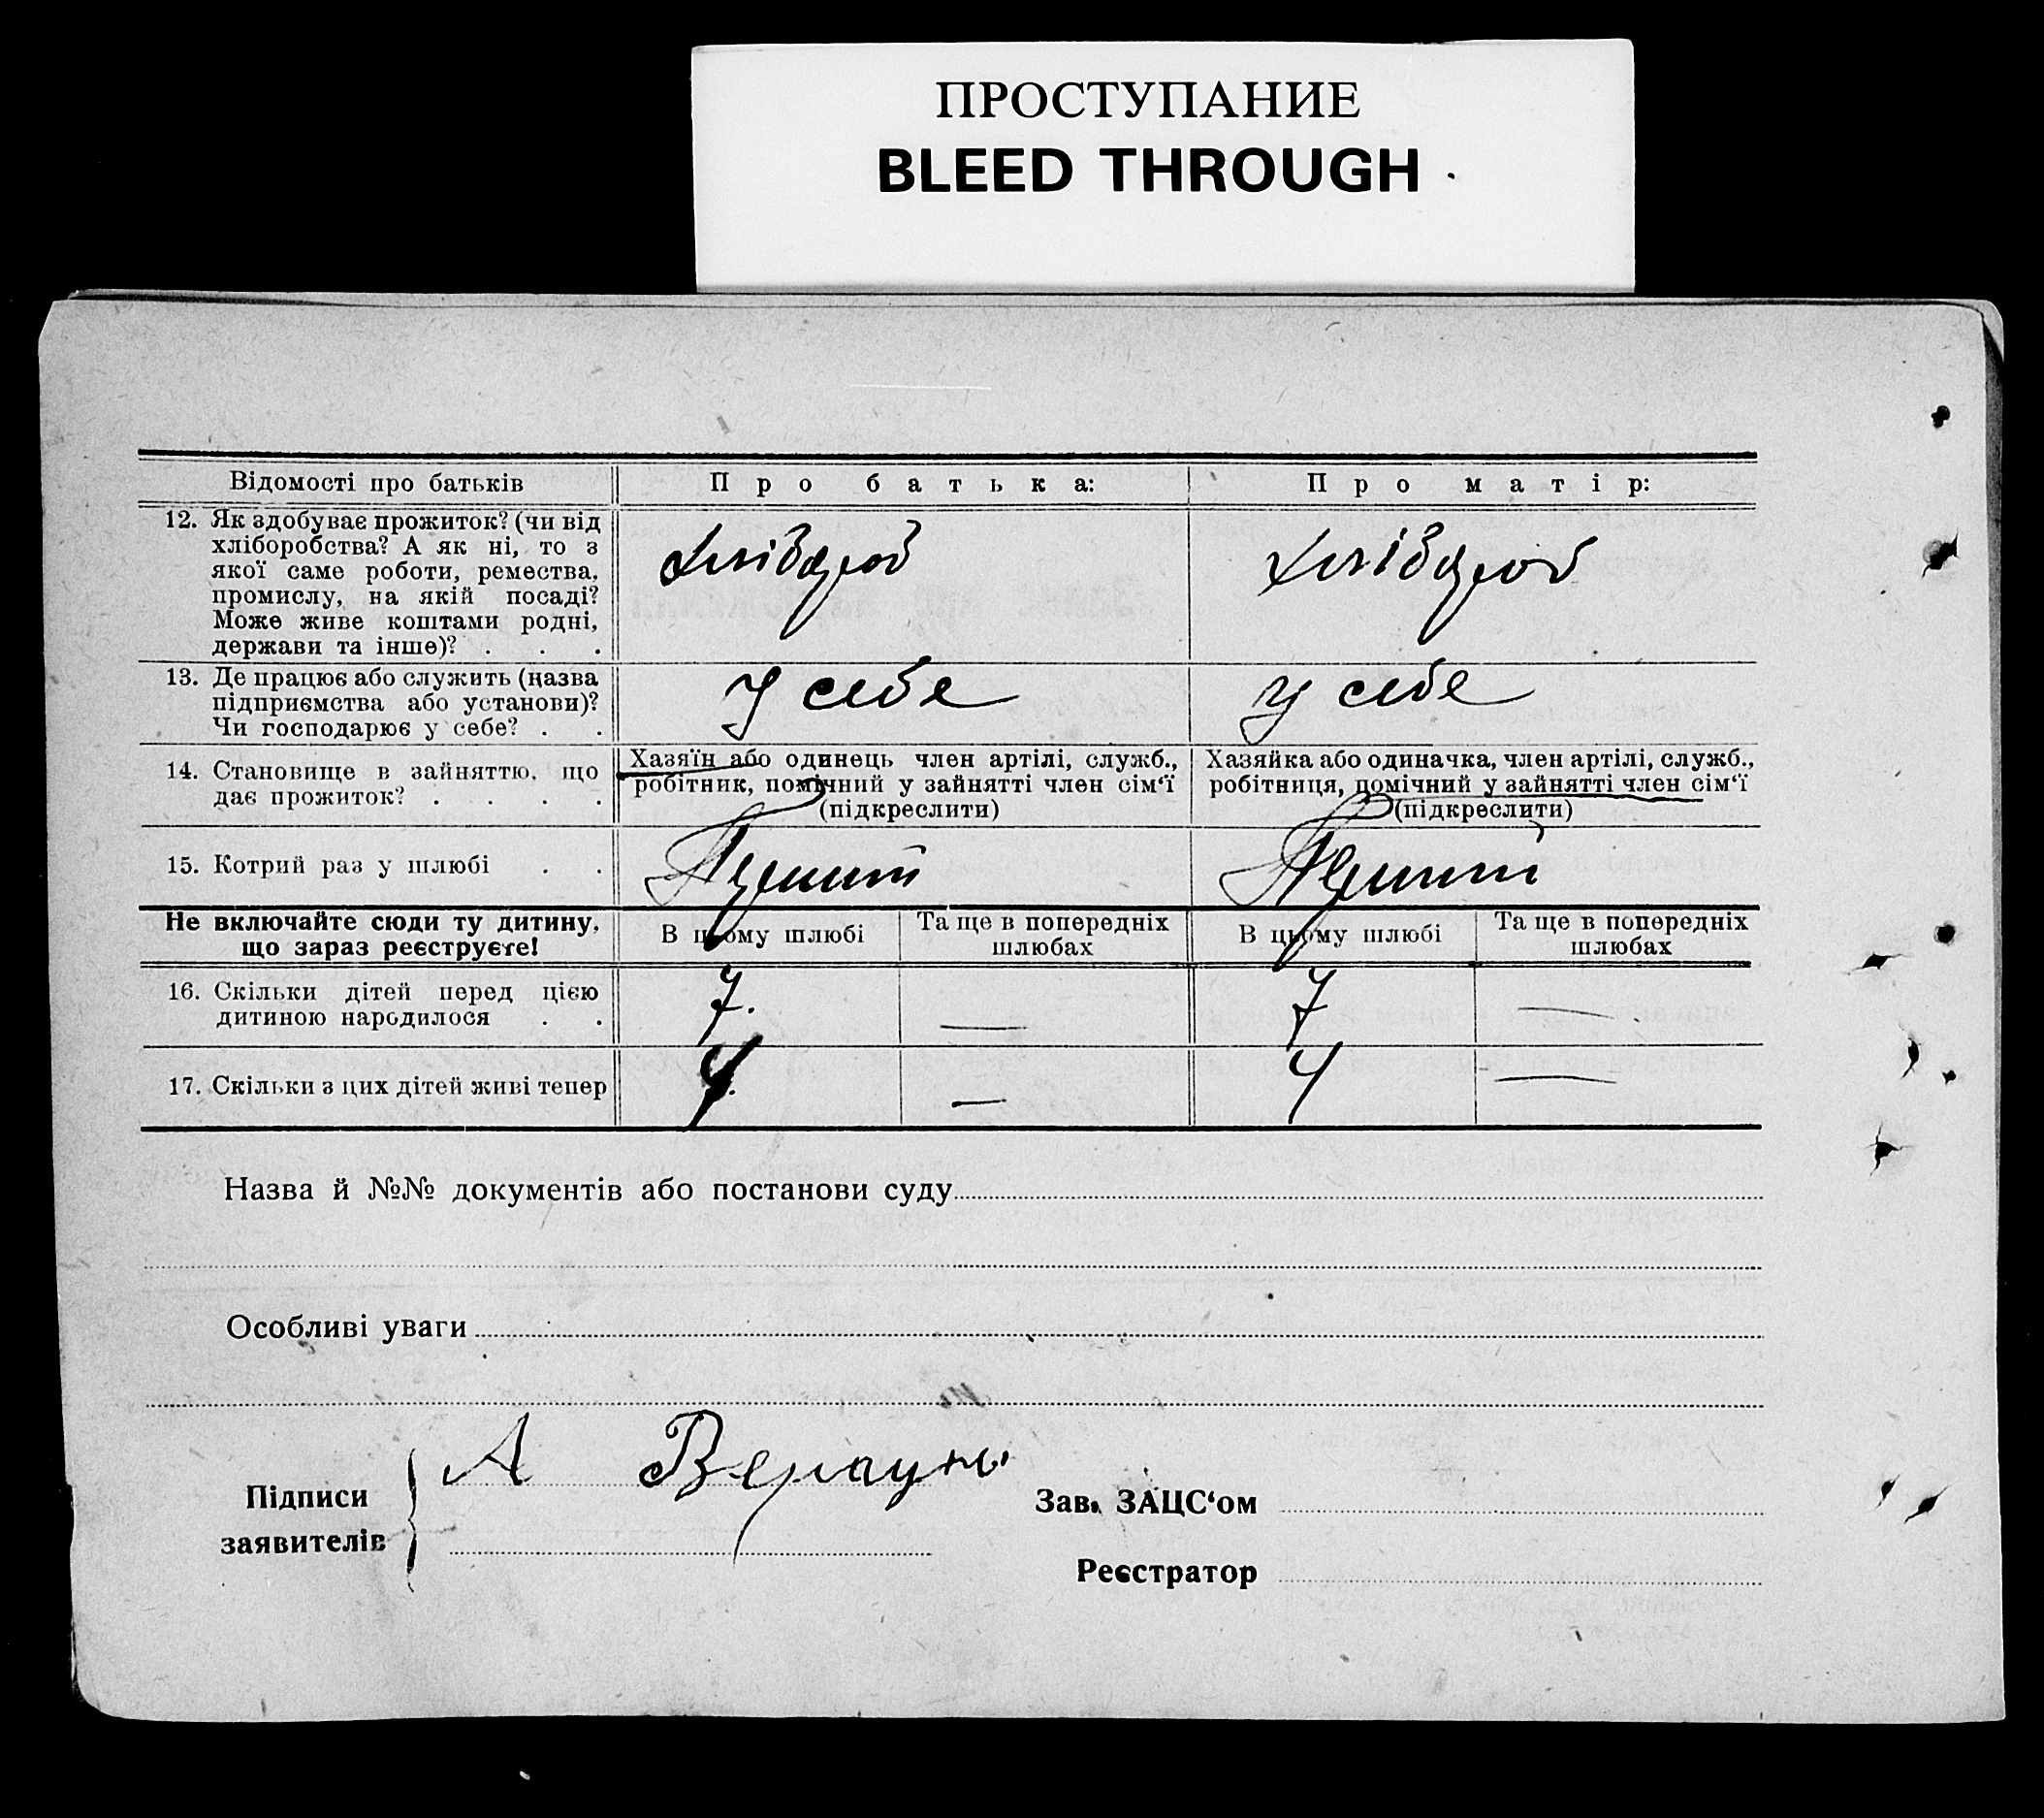 ПРОСТУПАНИЕ
BLEED THROUGH
Відомості про батьків
Про батька:
Про матір:
12. Як здобуває прожиток? (чи від
хліборобства? А як ні, то з
якої саме роботи, ремества,
промислу, на якій посаді?
Може живе коштами родні,
держави та інше)? . . .
13. Де працює або служить (назва
підприємства або установи)?
Чи господарює у себе? . .
У себе
У себе
14. Становище в зайняттю, що
дає прожиток? . . . .
Хазяїн або одинець член артілі, служб.,
робітник, помічний у зайнятті член сім‘ї
(підкреслити)
Хазяйка або одиначка, член артілі, служб.,
робітниця, помічний у зайнятті член сім‘ї
(підкреслити)
15. Котрий раз у шлюбі . .
Не включайте сюди ту дитину,
що зараз реєструєте!
В цьому шлюбі
Та ще в попередніх
шлюбах
В цьому шлюбі
Та ще в попередніх
шлюбах
16. Скільки дітей перед цією
дитиною народилося . .
7.
—
7
—
17. Скільки з цих дітей живі тепер
4.
—
4
—
Назва й №№ документів або постанови суду
Особливі уваги
Підписи
заявителів
А
Зав. ЗАЦС‘ом
Реєстратор